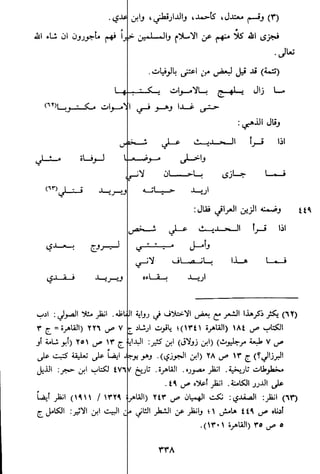 (٣) وقسم معتدل، كأحمد، والدارقطني، وابن عدي.
فجزى الله كلا منهم عن الإسلام والمسلمين خيراً فهم مأجورون ان شاء الله
تعالى.
(تتمة) قد قيل لبعض من اعتنى بالوفيات.
ما زال يلهج بالأموات يكتبها
حتى غدا وهو في الأموات مكتوبا (٦٢)
وقال الذهبي:
اذا قرأ الحديث علي شخص
وأخلى موضعا لوفاة مثلي
فما جازى باحسان لأني
اريد حياته ويريد قتلي (٦٣)
٤٤٩ وضمنه الزين العراقي فقال:
اذا قرأ الحديث علي شخص
وأمل ميتتي ليروج بعدي
فما هذا بانصاف لأني
اريد بقاءه ويريد فقدي
(٦٢) يكثر ذكر هذا الشعر مع بعض الاختلاف في رواية الفاظه. انظر مثلا الصولي: ادب
الكتاب ص ١٨٤ (القاهرة ١٣٤١)؛ ياقوت ارشاد ج ٧ ص ٢٢٦ (القاهرة = ج ٣
ص ٧ طبعة مرجليوث)؛ ابن كثير: البداية ج ١٣ ص ٢٥١ (ابو شامة أو
البرزالي؟) ج ١٣ ص ٢٨ (ابن الجوزي). وهو يوجد ايضا على تعليقة على كتب
مخطوطات تاريخية. انظر مصوره القاهرة. تاريخ ٤٧٦ لكتاب ابن حجر: الذيل
على الدرر الكامنة. انظر اعلاه ص ٤٩.
(٦٣) انظر: الصفدي: نكت الهميان ص ٢٤٣ (القاهرة ١٣٢٩ / ١٩١١) انظر ايضا
ادناه ص ٤٤٩ هامش ٦؛ وانظر عن الشطر الثاني من البيت ابن الاثير: الكامل ج
٥ ص ٣٥ (القاهرة ١٣٠١).
٣٣٨